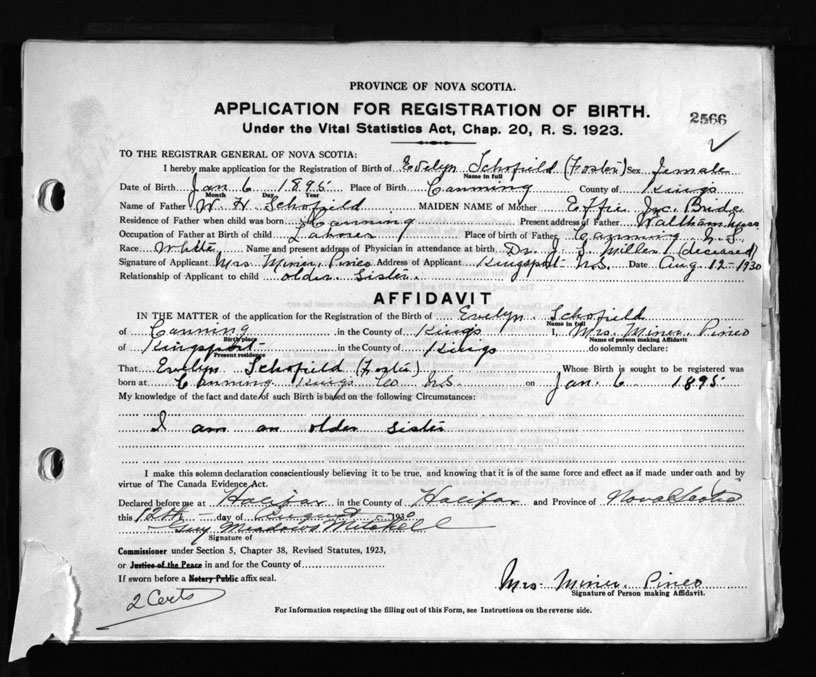 PROVINCE OF NOVA SCOTIA.
APPLICATION FOR REGISTRATION OF BIRTH.
2566
Under the Vital Statistics Act, Chap. 20, R. S. 1923.
TO THE REGISTRAR GENERAL OF NOVA SCOTIA:
I hereby make application for the Registration of Birth of Evelyn Schofield (Foster) Sex Female
Name in full
Date of Birth Jan 6 1895 Place of Birth Canning County of Kings
Month Day Year
Name of Father W H Schofield MAIDEN NAME of Mother Effie Mc Bride
Residence of Father when child was born Canning Present address of Father Waltham Mass
Occupation of Father at Birth of child Laborer Place of birth of Father Canning N.S.
Race White Name and present address of Physician in attendance at birth, Dr. J. S. Miller (deceased)
Signature of Applicant Mrs Miner Pineo Address of Applicant Kingsport N.S. Date Aug 12 - 1930
Relationship of Applicant to child older sister
AFFIDAVIT
IN THE MATTER of the application for the Registration of the Birth of Evelyn Schofield
Name in full
of Canning in the County of Kings I, Mrs. Miner Pineo
Birth place Name of person making Affidavit
of Kingsport in the County of Kings do solemnly declare:
Present residence
That Evelyn Schofield (Foster) Whose Birth is sought to be registered was
born at Canning Kings Co N.S. on Jan. 6 1895
My knowledge of the fact and date of such Birth is based on the following Circumstances:
I am an older sister
I make this solemn declaration conscientiously believing it to be true, and knowing that it is of the same force and effect as if made under oath and by
virtue of The Canada Evidence Act.
Declared before me at Halifax in the County of Halifax and Province of Nova Scotia
this 12th day of August 1930
Guy Meadows Mitchell
Signature of
Commissioner under Section 5, Chapter 38, Revised Statutes, 1923,
or Justice of the Peace in and for the County of
If sworn before a Notary Public affix seal.
Mrs. Miner Pineo
Signature of Person making Affidavit.
2 Certs
For Information respecting the filling out of this Form, see Instructions on the reverse side.